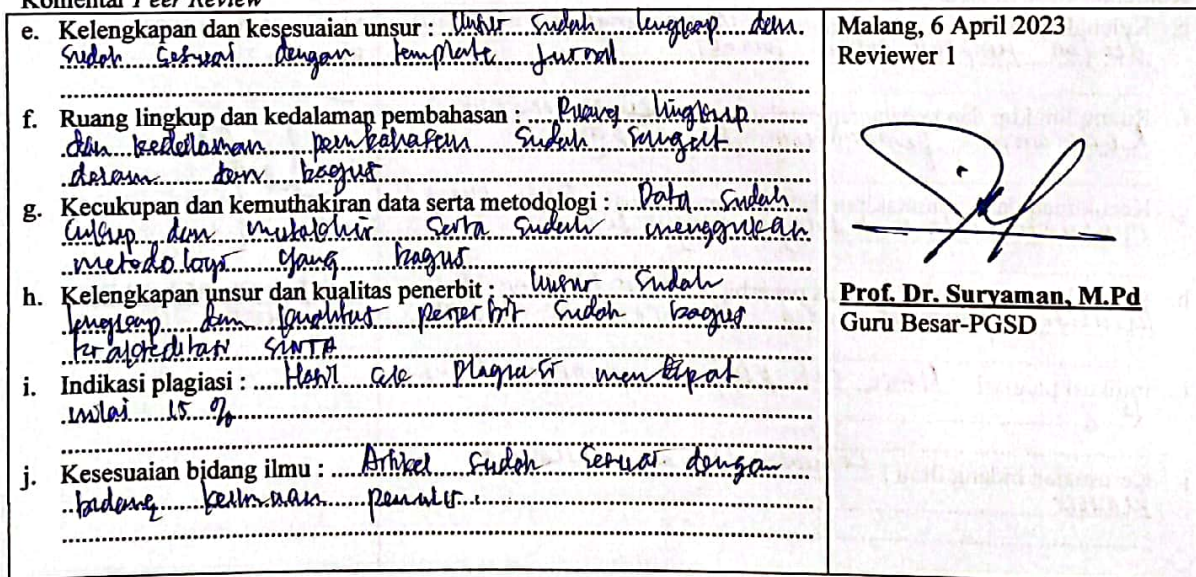 Komentar Peer Review
e. Kelengkapan dan kesesuaian unsur : Unsur Sudah lengkap dan
Sudah Sesuai dengan template Jurnal
f. Ruang lingkup dan kedalaman pembahasan : Ruang lingkup
dan kedalaman pembahasan Sudah Sangat
dalam dan bagus
g. Kecukupan dan kemuthakiran data serta metodologi : Data Sudah
Cukup dan mutakhir Serta Sudah menggunakan
metodologi yang bagus
h. Kelengkapan unsur dan kualitas penerbit : Unsur Sudah
lengkap dan kualitas penerbit Sudah bagus
terakreditasi SINTA
i. Indikasi plagiasi : Hasil cek Plagiasi mendapat
nilai 15 %
j. Kesesuaian bidang ilmu : Artikel Sudah Sesuai dengan
bidang keilmuan penulis
Malang, 6 April 2023
Reviewer 1
Prof. Dr. Suryaman, M.Pd
Guru Besar-PGSD